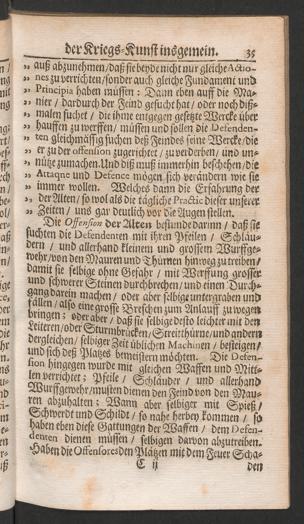 der Kriegs-Kunst insgemein. 35
auß abzunehmen/daß sie beyde nicht nur gleiche Actio-
nes zu verrichten/sonder auch gleiche Fundament und
Principia haben müssen: Dann eben auff die Ma-
nier / dardurch der Feind gesucht hat / oder noch diß-
malen suchet / die ihme entgegen gesetzte Wercke über
hauffen zu werffen / müssen und sollen die Defenden-
ten gleichmässig suchen deß Feindes seine Wercke/die
er zu der offension zugerichtet / zuverderben/ und un-
nütze zumachen. Und diß muß immerhin beschehen/die
Attaque und Defence mögen sich verändern wie sie
immer wollen. Welches dann die Erfahrung der
der Alten/so wol als die tägliche Practic dieser unserer
Zeiten / uns gar deutlich vor die Augen stellen.
Die Offension der Alten bestunde darinn / daß sie
suchten die Defendenten mit ihren Pfeilen / Schläu-
dern / und allerhand kleinem und grossem Wurffge-
wehr/von den Mauren und Thürnen hinweg zu treiben/
damit sie selbige ohne Gefahr / mit Werffung grosser
und schwerer Steinen durchbrechen/und einen Durch-
gang darein machen / oder aber selbige untergraben und
fällen / also eine grosse Breschen zum Anlauff zu wegen
bringen; oder aber / daß sie selbige desto leichter mit den
Leiteren/oder Sturmbrücken/Streitthürne/und andern
dergleichen/ selbiger Zeit üblichen Machinen / besteigen/
und sich deß Platzes bemeistern möchten. Die Defen-
sion hingegen wurde mit gleichen Waffen und Mitt-
len verrichtet; Pfeile / Schläuder / und allerhand
Wurffgewehr/musten dienen den Feind von den Mau-
ren abzuhalten: Wann aber selbiger mit Spieß/
Schwerdt und Schildt/ so nahe herbey kommen / so
haben eben diese Gattungen der Waffen / dem Defen-
denten dienen müssen / selbigen darvon abzutreiben.
Haben die Offensores den Plätzen mit dem Feuer Scha-
C ij den